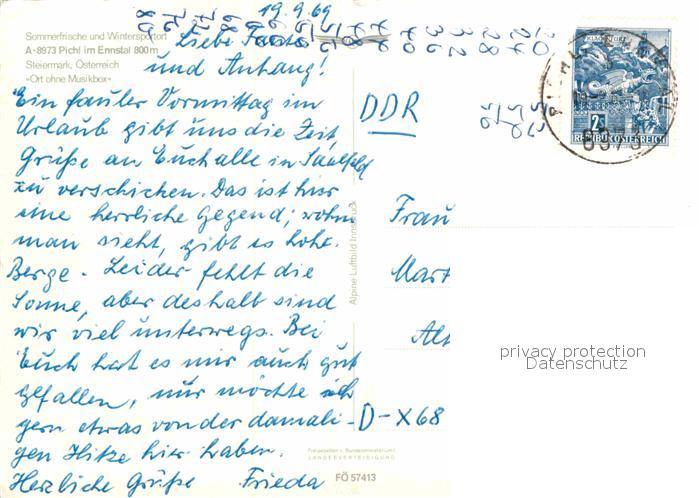 19.9.69
Sommerfrische und Wintersportort
A-8973 Pichl im Ennstal 800m
Steiermark, Österreich
»Ort ohne Musikbox«
Liebe
und Anhang!
Ein fauler Vormittag im
Urlaub gibt uns die Zeit,
Grüße an Euch alle in Saalfeld
zu verschicken. Das ist hier
eine herrliche Gegend; wohin
man sieht, gibt es hohe
Berge. Leider fehlt die
Sonne, aber deshalb sind
wir viel unterwegs. Bei
Euch hat es mir auch gut
gefallen, nur möchte ich
gern etwas von der damali-
gen Hitze hier haben.
Herzliche Grüße Frieda
Alpine Luftbild Innsbruck
Freigegeben v. Bundesministerium f.
LANDESVERTEIDIGUNG
FÖ 57413
2S
REPUBLIK ÖSTERREICH
8973
DDR
Frau
Mart
Alt
D-X68
privacy protection
Datenschutz